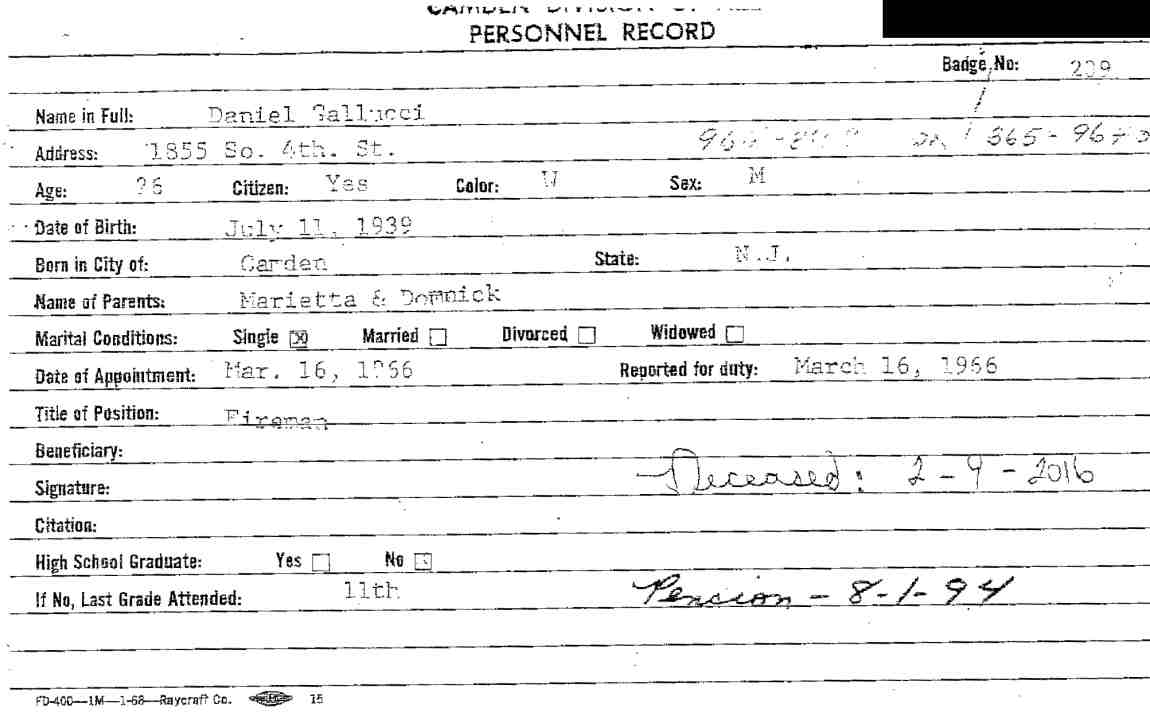 PERSONNEL RECORD
Badge No: 209
Name in Full: Daniel Gallucci
Address: 1855 So. 4th. St. 365-
Age: 26 Citizen: Yes Color: W Sex: M
Date of Birth: July 11, 1939
Born in City of: Camden State: N.J.
Name of Parents: Marietta & Domnick
Marital Conditions: Single ☒ Married ☐ Divorced ☐ Widowed ☐
Date of Appointment: Mar. 16, 1966 Reported for duty: March 16, 1966
Title of Position: Fireman
Beneficiary:
Signature: Deceased: 2-9-2016
Citation:
High School Graduate: Yes ☐ No ☒
If No, Last Grade Attended: 11th Pencion - 8-1-94
FD-400—1M—1-68—Raycraft Co. 15